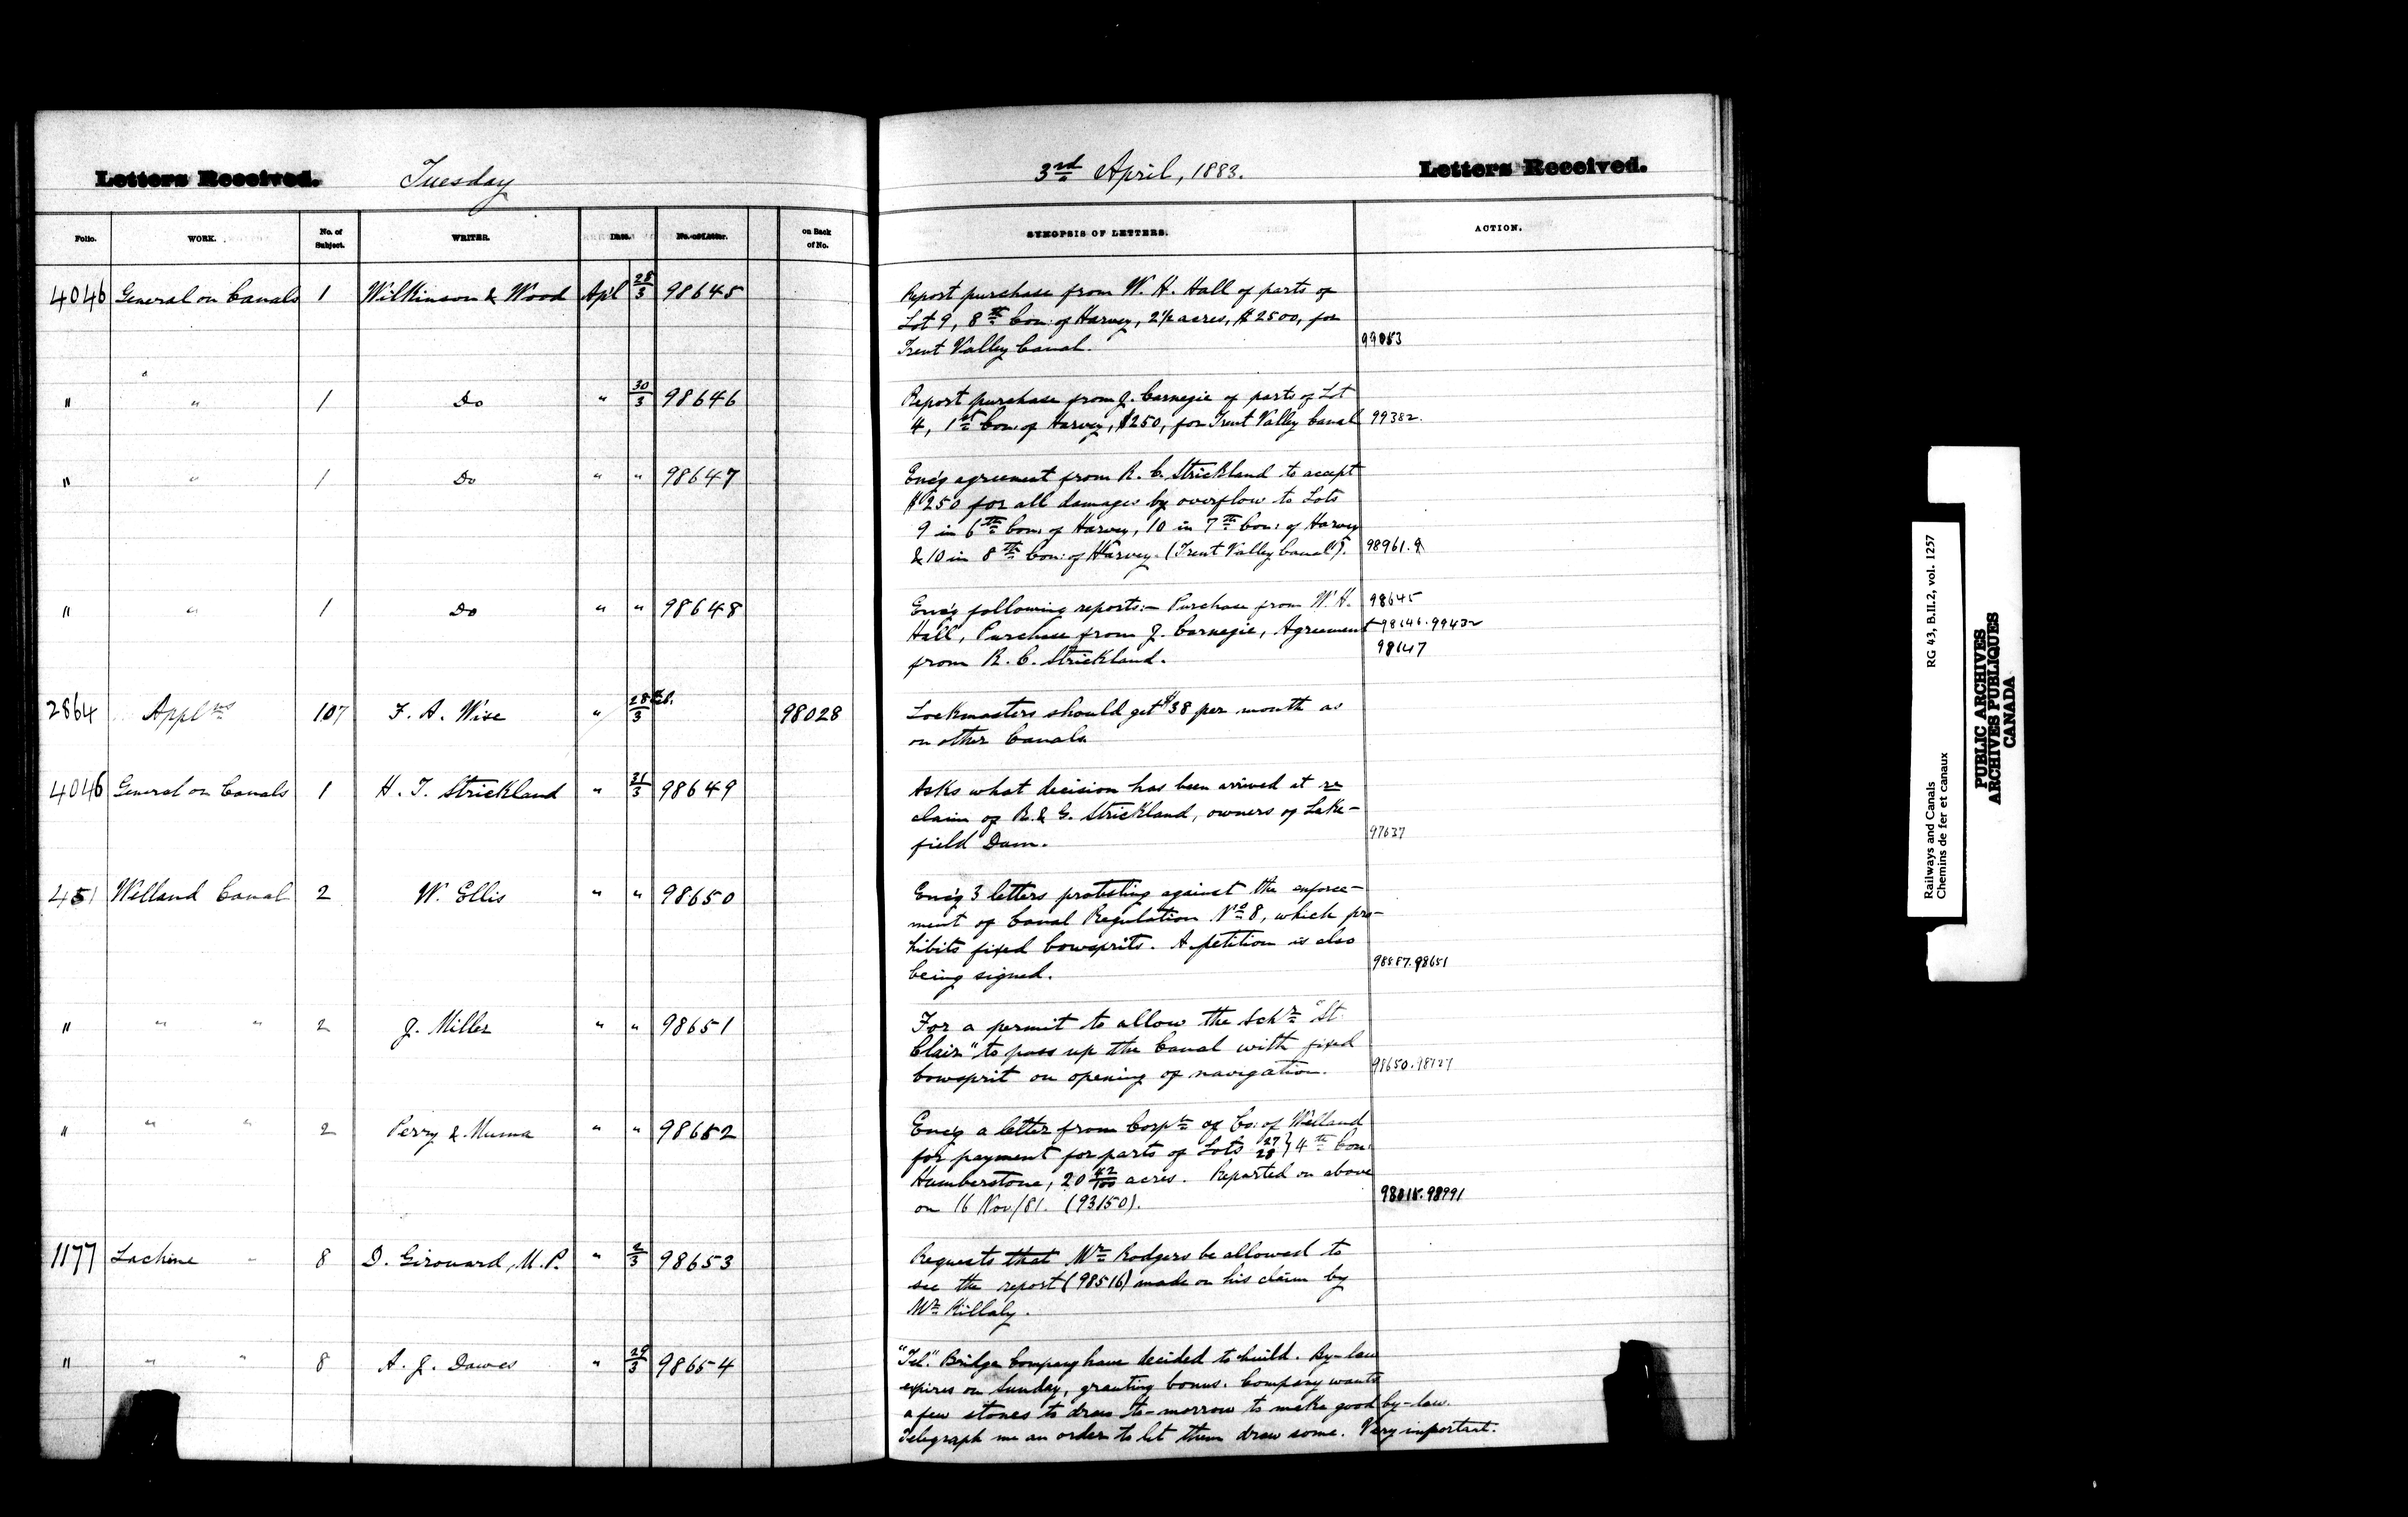 Letters Received. Tuesday
Folio. WORK. No. of Subject. WRITER. Date. No. of Letter. on Back of No.
4046 General on Canals 1 Wilkinson & Wood Apl 28/3 98645
" " 1 Do " 30/3 98646
" " 1 Do " " 98647
" " 1 Do " " 98648
2864 Applns 107 F. A. Wise " 28/3 98028
4046 General on Canals 1 H. T. Strickland " 31/3 98649
451 Welland Canal 2 W. Ellis " " 98650
" " " 2 J. Miller " " 98651
" " " 2 Perry & Numa " " 98652
1177 Lachine " 8 D. Girouard, M.P. " 2/3 98653
" " " 8 A. J. Dawes " 29/3 98654
3rd April, 1883. Letters Received.
SYNOPSIS OF LETTERS. ACTION.
Report purchase from W. H. Hall of parts of
Lot 9, 8th Con: of Harvey, 2½ acres, $2500, for
Trent Valley Canal. 99053
Report purchase from J. Carnegie of parts of Lot
4, 1st Con: of Harvey, $250, for Trent Valley Canal 99382.
Enc'g agreement from R. C. Strickland to accept
$250 for all damages by overflow to Lots
9 in 6th Con: of Harvey, 10 in 7th Con: of Harvey
& 10 in 8th Con: of Harvey. (Trent Valley Canal). 98961.
Enc'g following reports:- Purchase from W. H. 98645
Hall, Purchase from J. Carnegie, Agreement 98646.99432
from R. C. Strickland. 98647
Lockmasters should get $38 per month as
on other Canals.
Asks what decision has been arrived at re
claim of R. & G. Strickland, owners of Lake-
field Dam. 97637
Enc'g 3 letters protesting against the enforce-
ment of Canal Regulation No 8, which pro-
hibits fixed bowsprits. A petition is also
being signed. 98587.98651
For a permit to allow the Schr "St.
Clair" to pass up the Canal with fixed
bowsprit on opening of navigation. 98650.98727
Enc'g a letter from Corpn of Co: of Welland
for payment for parts of Lots 27 28 } 4th Con:
Humberstone, 20 42/100 acres. Reported on above
on 16 Nov/81. (93150). 98015.98991
Requests that Mr Rodgers be allowed to
see the report (98516) made on his claim by
Mr Killaly.
"Tel." Bridge Company have decided to build. By-law
expires on Sunday, granting bonus. Company wants
a few stones to draw to-morrow to make good by-law.
Telegraph me an order to let them draw some. Very important.
Railways and Canals RG 43, B.II.2, vol. 1257
Chemins de fer et canaux
PUBLIC ARCHIVES
ARCHIVES PUBLIQUES
CANADA